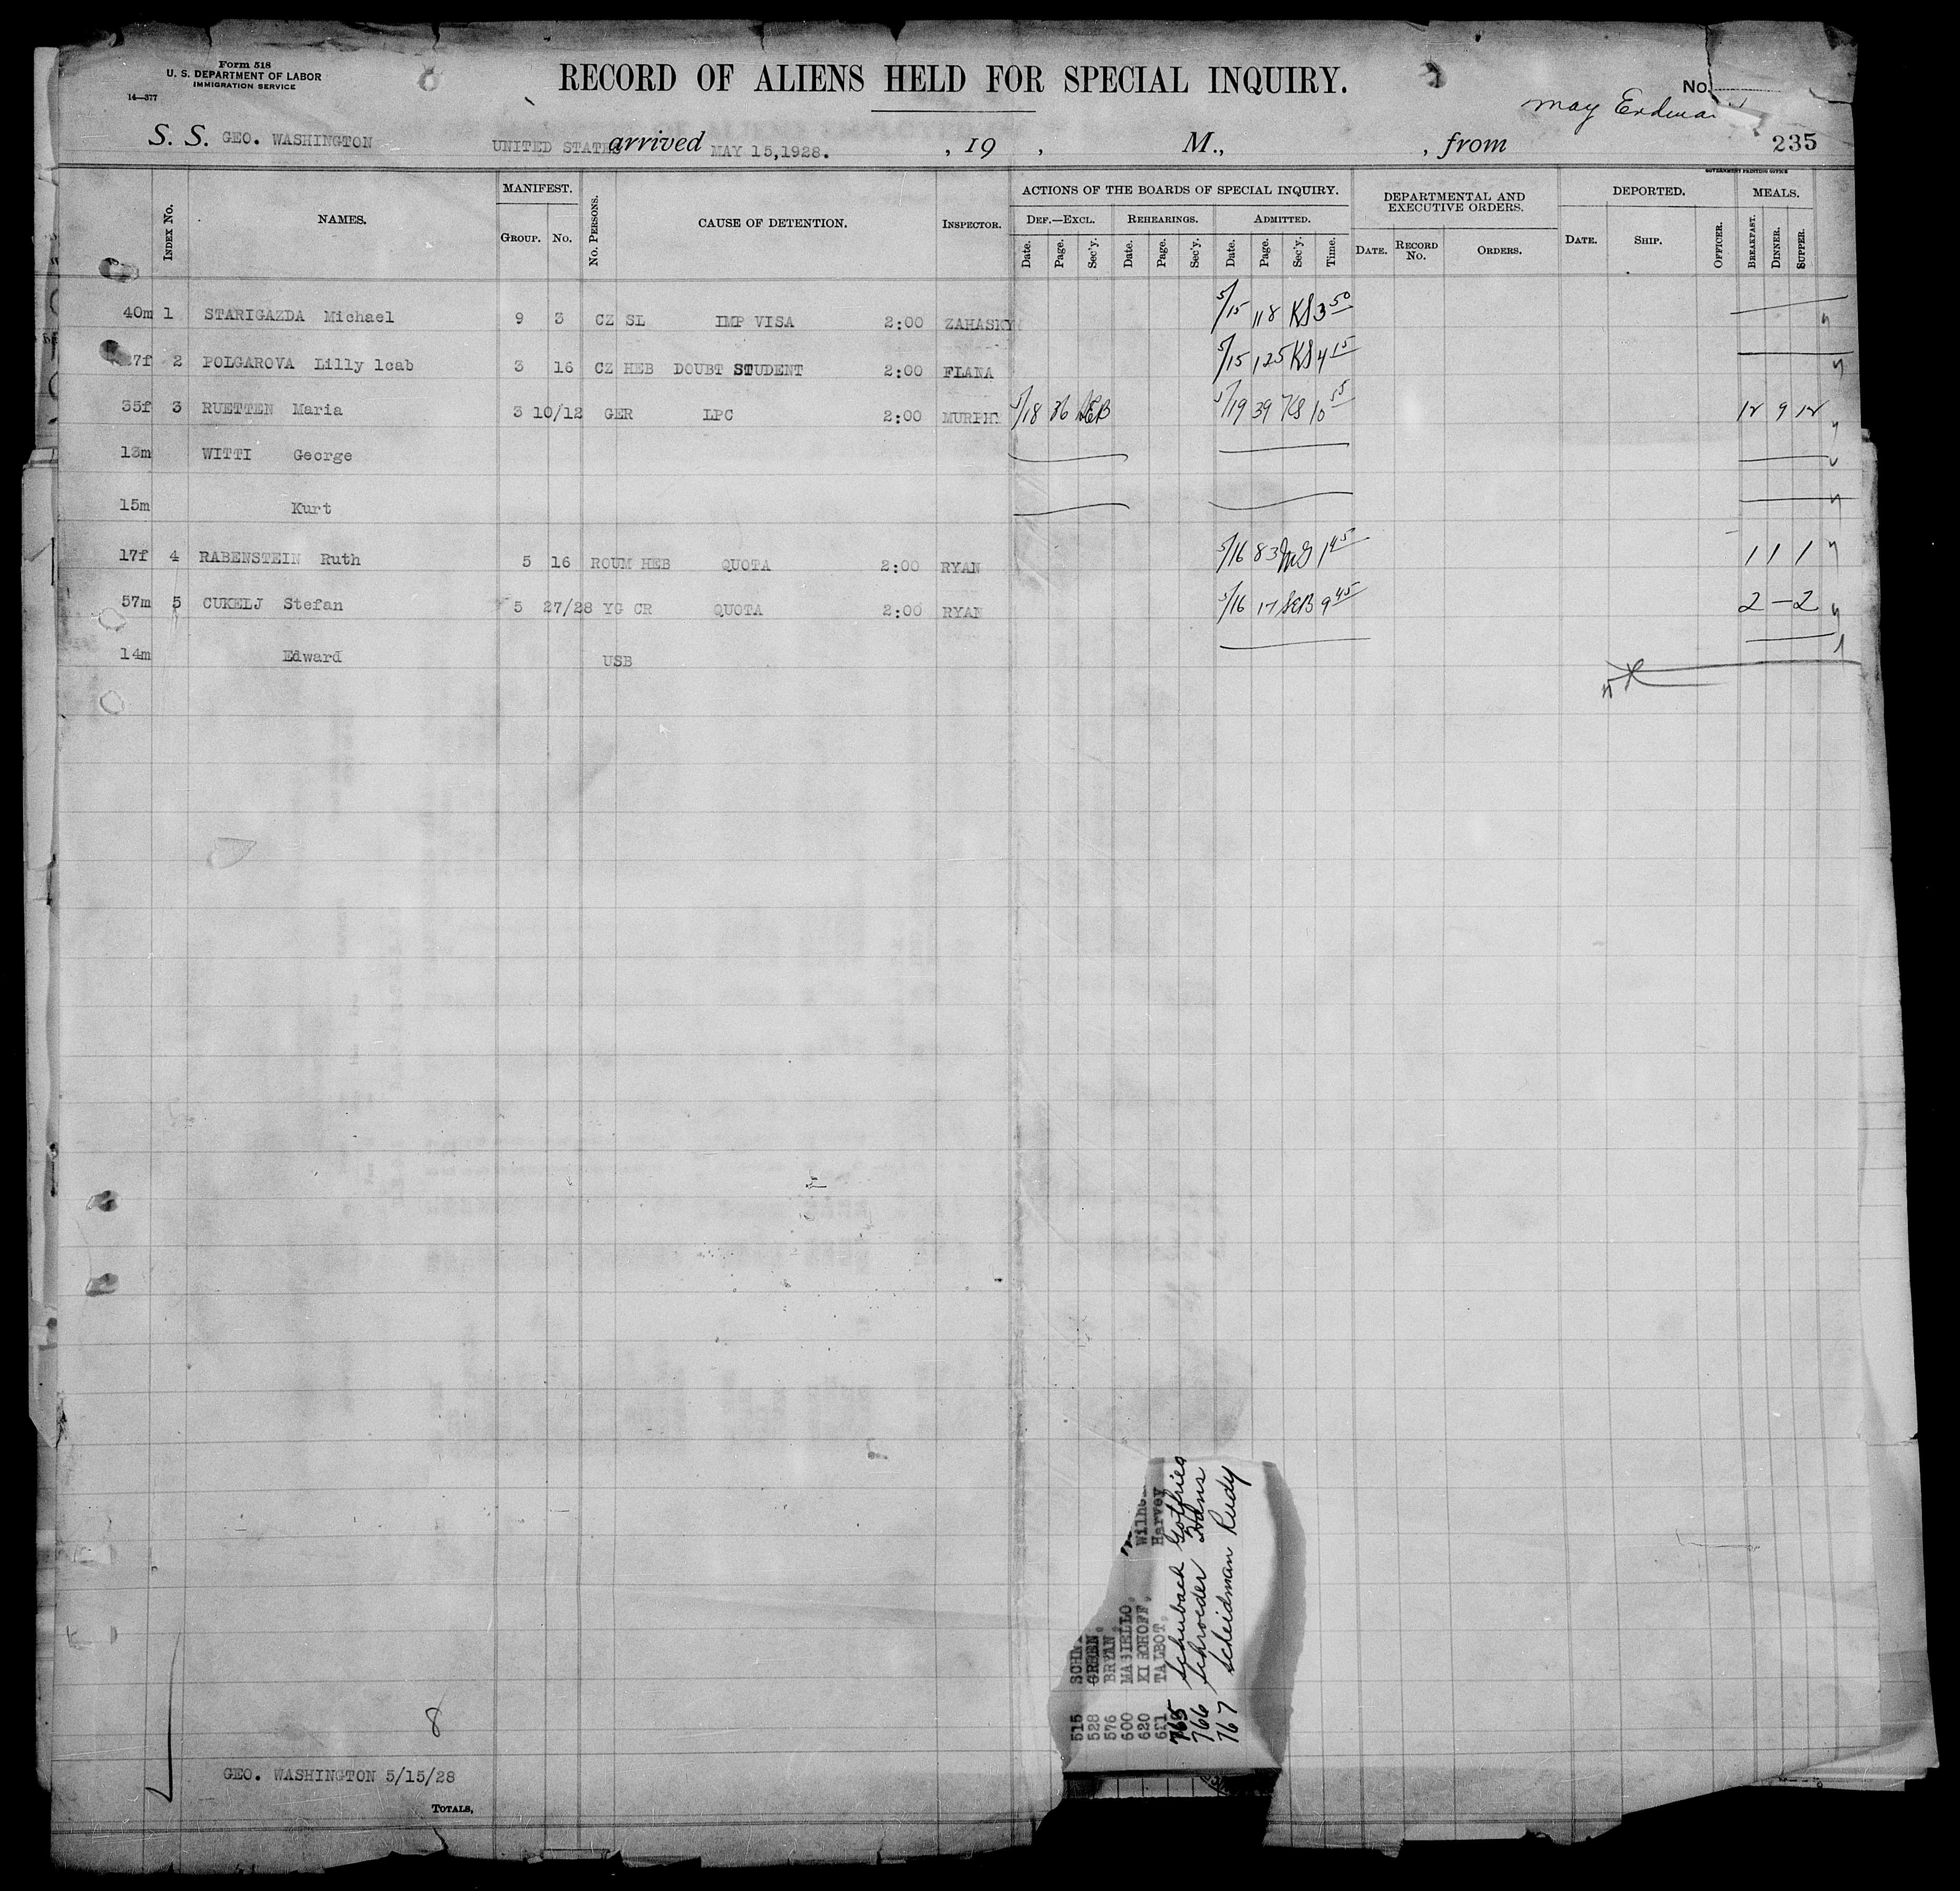 Form 518
U. S. DEPARTMENT OF LABOR
IMMIGRATION SERVICE
14—377
RECORD OF ALIENS HELD FOR SPECIAL INQUIRY.
No.
May
S. S. GEO. WASHINGTON UNITED STATES arrived MAY 15,1928. , 19 , M., , from 235
GOVERNMENT PRINTING OFFICE
Index No. NAMES. MANIFEST. Group. No. No. Persons. CAUSE OF DETENTION. Inspector. ACTIONS OF THE BOARDS OF SPECIAL INQUIRY. Def.—Excl. Date. Page. Sec'y. Rehearings. Date. Page. Sec'y. Admitted. Date. Page. Sec'y. Time. DEPARTMENTAL AND EXECUTIVE ORDERS. Date. Record No. Orders. DEPORTED. Date. Ship. Officer. MEALS. Breakfast. Dinner. Supper.
40m 1 STARIGAZDA Michael 9 3 CZ SL IMP VISA 2:00 ZAHASKY 5/15 118 KS 3 50
27f 2 POLGAROVA Lilly lcab 3 16 CZ HEB DOUBT STUDENT 2:00 FLANA 5/15 125 KS 4 15
35f 3 RUETTEN Maria 3 10/12 GER LPC 2:00 MURPHY 5/18 36 SEB 5/19 39 KS 10 55 12 9 12
13m WITTI George
15m Kurt
17f 4 RABENSTEIN Ruth 5 16 ROUM HEB QUOTA 2:00 RYAN 5/16 83 McG 1 45 1 1 1
57m 5 CUKELJ Stefan 5 27/28 YG CR QUOTA 2:00 RYAN 5/16 17 SEB 9 45 2 — 2
14m Edward USB
515 SCHN
528 GREEN,
576 BRYAN,
600 MASIELLO,
620 KIRCHOFF, Wilh
621 TALBOT, Harvey
765 Schuback Gotfried
766 Schroeder Hans
767 Scheidman Rudy
8
GEO. WASHINGTON 5/15/28
Totals,